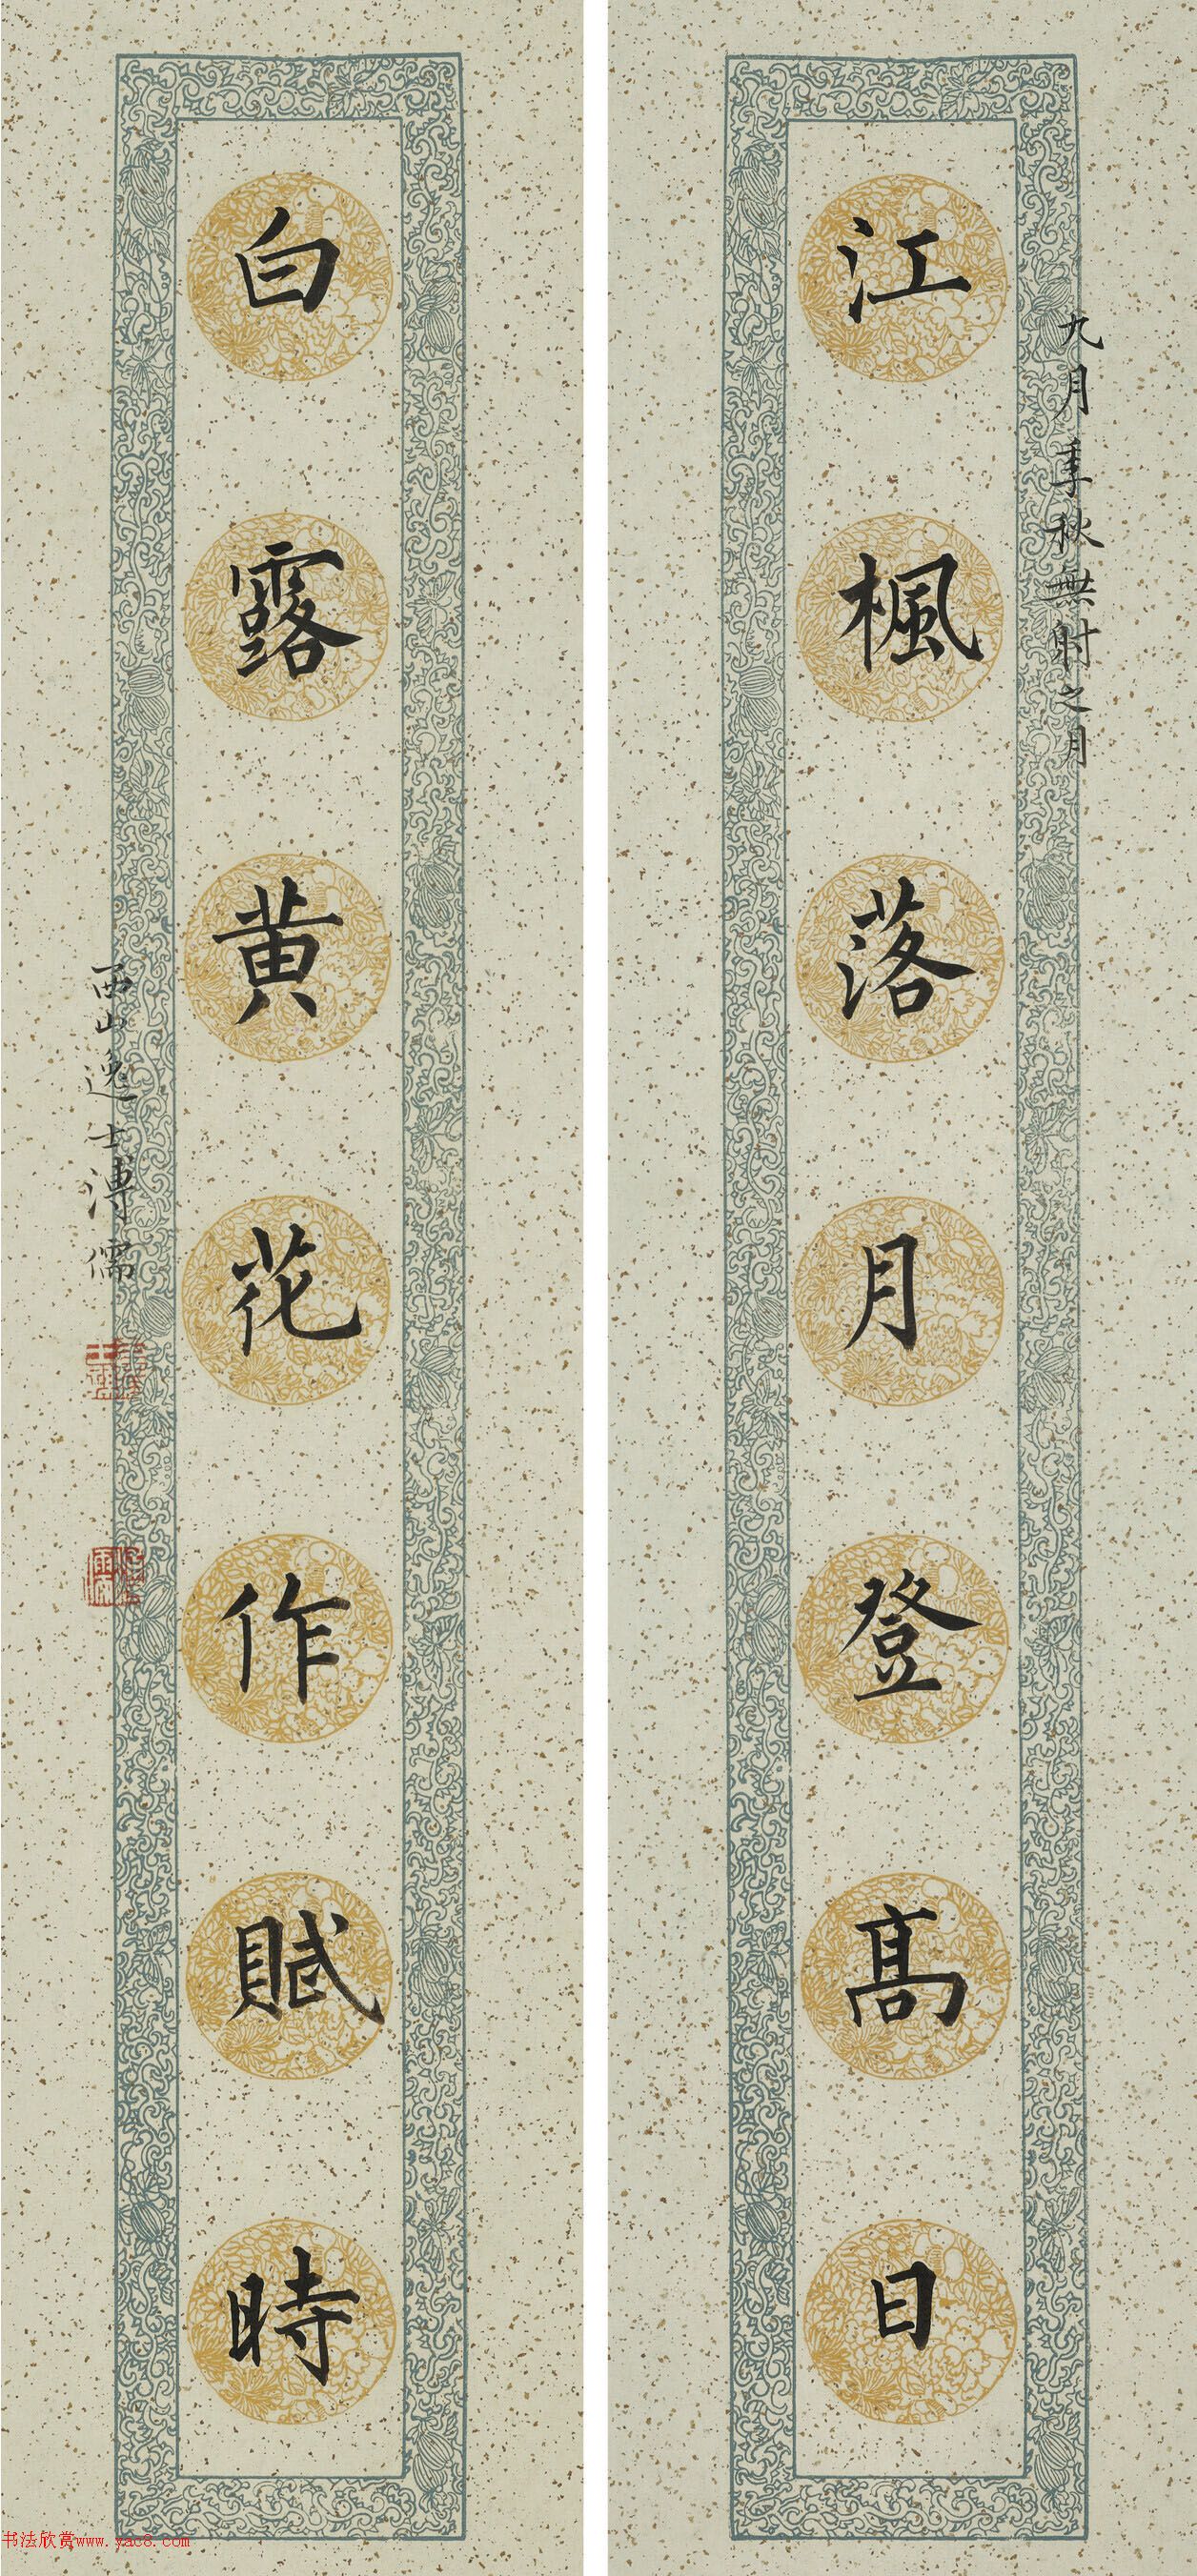 九月季秋無射之月
江楓落月登高日
白露黄花作賦時
西山逸士溥儒
书法欣赏www.yac8.com